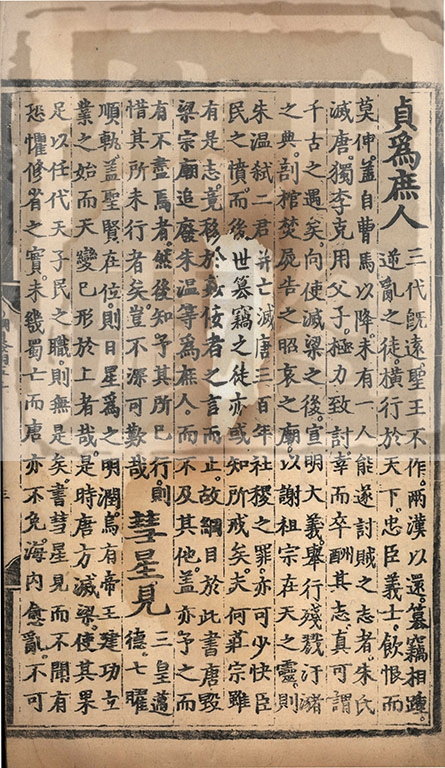 貞爲庶人
三代旣遠。聖王不作。兩漢以還。篡竊相踵。
逆亂之徒。橫行於天下。忠臣義士。飮恨而
莫伸。蓋自曹馬以降。未有一人能遂討賊之志者。朱氏
滅唐。獨李克用父子。極力致討。幸而卒酬其志。真可謂
千古之遇矣。向使滅梁之後。宣明大義。舉行殘戮汙瀦
之典。剖棺焚屍。告之昭哀之廟。以謝祖宗在天之靈。則
朱温弑二君。并亡滅唐三百年社稷之罪。亦可少快臣
民之憤。而後世篡竊之徒。亦或知所戒矣。夫何莊宗雖
有是志。竟移於佞者之言而止。故綱目於此書唐毁
梁宗廟。追廢朱温等爲庶人。而不及其他。蓋亦予之而
有不盡焉者。然後知予其所已行。則
惜其所未行者矣。豈不深可歎哉
彗星見
三皇邁
德。七曜
順軌。蓋聖賢在位。則日星爲之明潤。烏有帝王建功立
業之始。而天變已形於上者哉。是時唐方滅梁。使其果
足以任代天子民之職。則無是矣。書彗星見。而不聞有
恐懼修省之實。未幾蜀亡。而唐亦不免。海内愈亂。不可